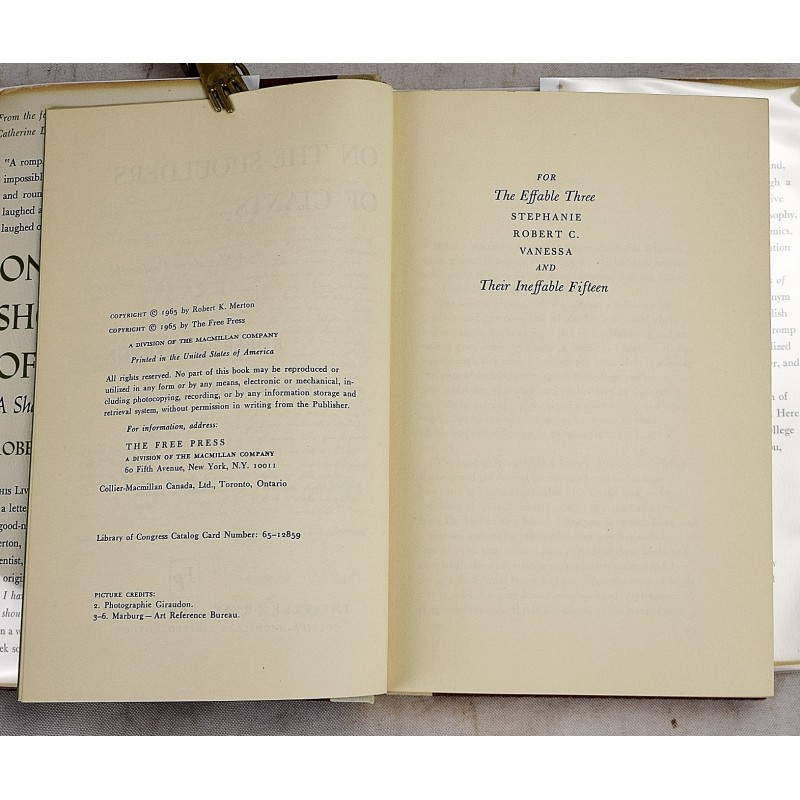 From the f
Catherine
"A romp
impossibl
and roun
laughed a
laughed o
ON
SH
OF
A Sha
ROBE
HIS LIV
a lette
good-n
erton,
entist,
origi
I ha
shou
n a w
ek so
ON THE SHOULDERS
OF GIANTS
COPYRIGHT © 1965 by Robert K. Merton
COPYRIGHT © 1965 by The Free Press
A DIVISION OF THE MACMILLAN COMPANY
Printed in the United States of America
All rights reserved. No part of this book may be reproduced or
utilized in any form or by any means, electronic or mechanical, in-
cluding photocopying, recording, or by any information storage and
retrieval system, without permission in writing from the Publisher.
For information, address:
THE FREE PRESS
A DIVISION OF THE MACMILLAN COMPANY
60 Fifth Avenue, New York, N.Y. 10011
Collier-Macmillan Canada, Ltd., Toronto, Ontario
Library of Congress Catalog Card Number: 65-12859
PICTURE CREDITS:
2. Photographie Giraudon.
3-6. Marburg — Art Reference Bureau.
FOR
The Effable Three
STEPHANIE
ROBERT C.
VANESSA
AND
Their Ineffable Fifteen
nd,
gh a
ive
sophy,
mics,
ation
s of
nym
lish
romp
lized
er, and
n of
Here
ollege
ou,